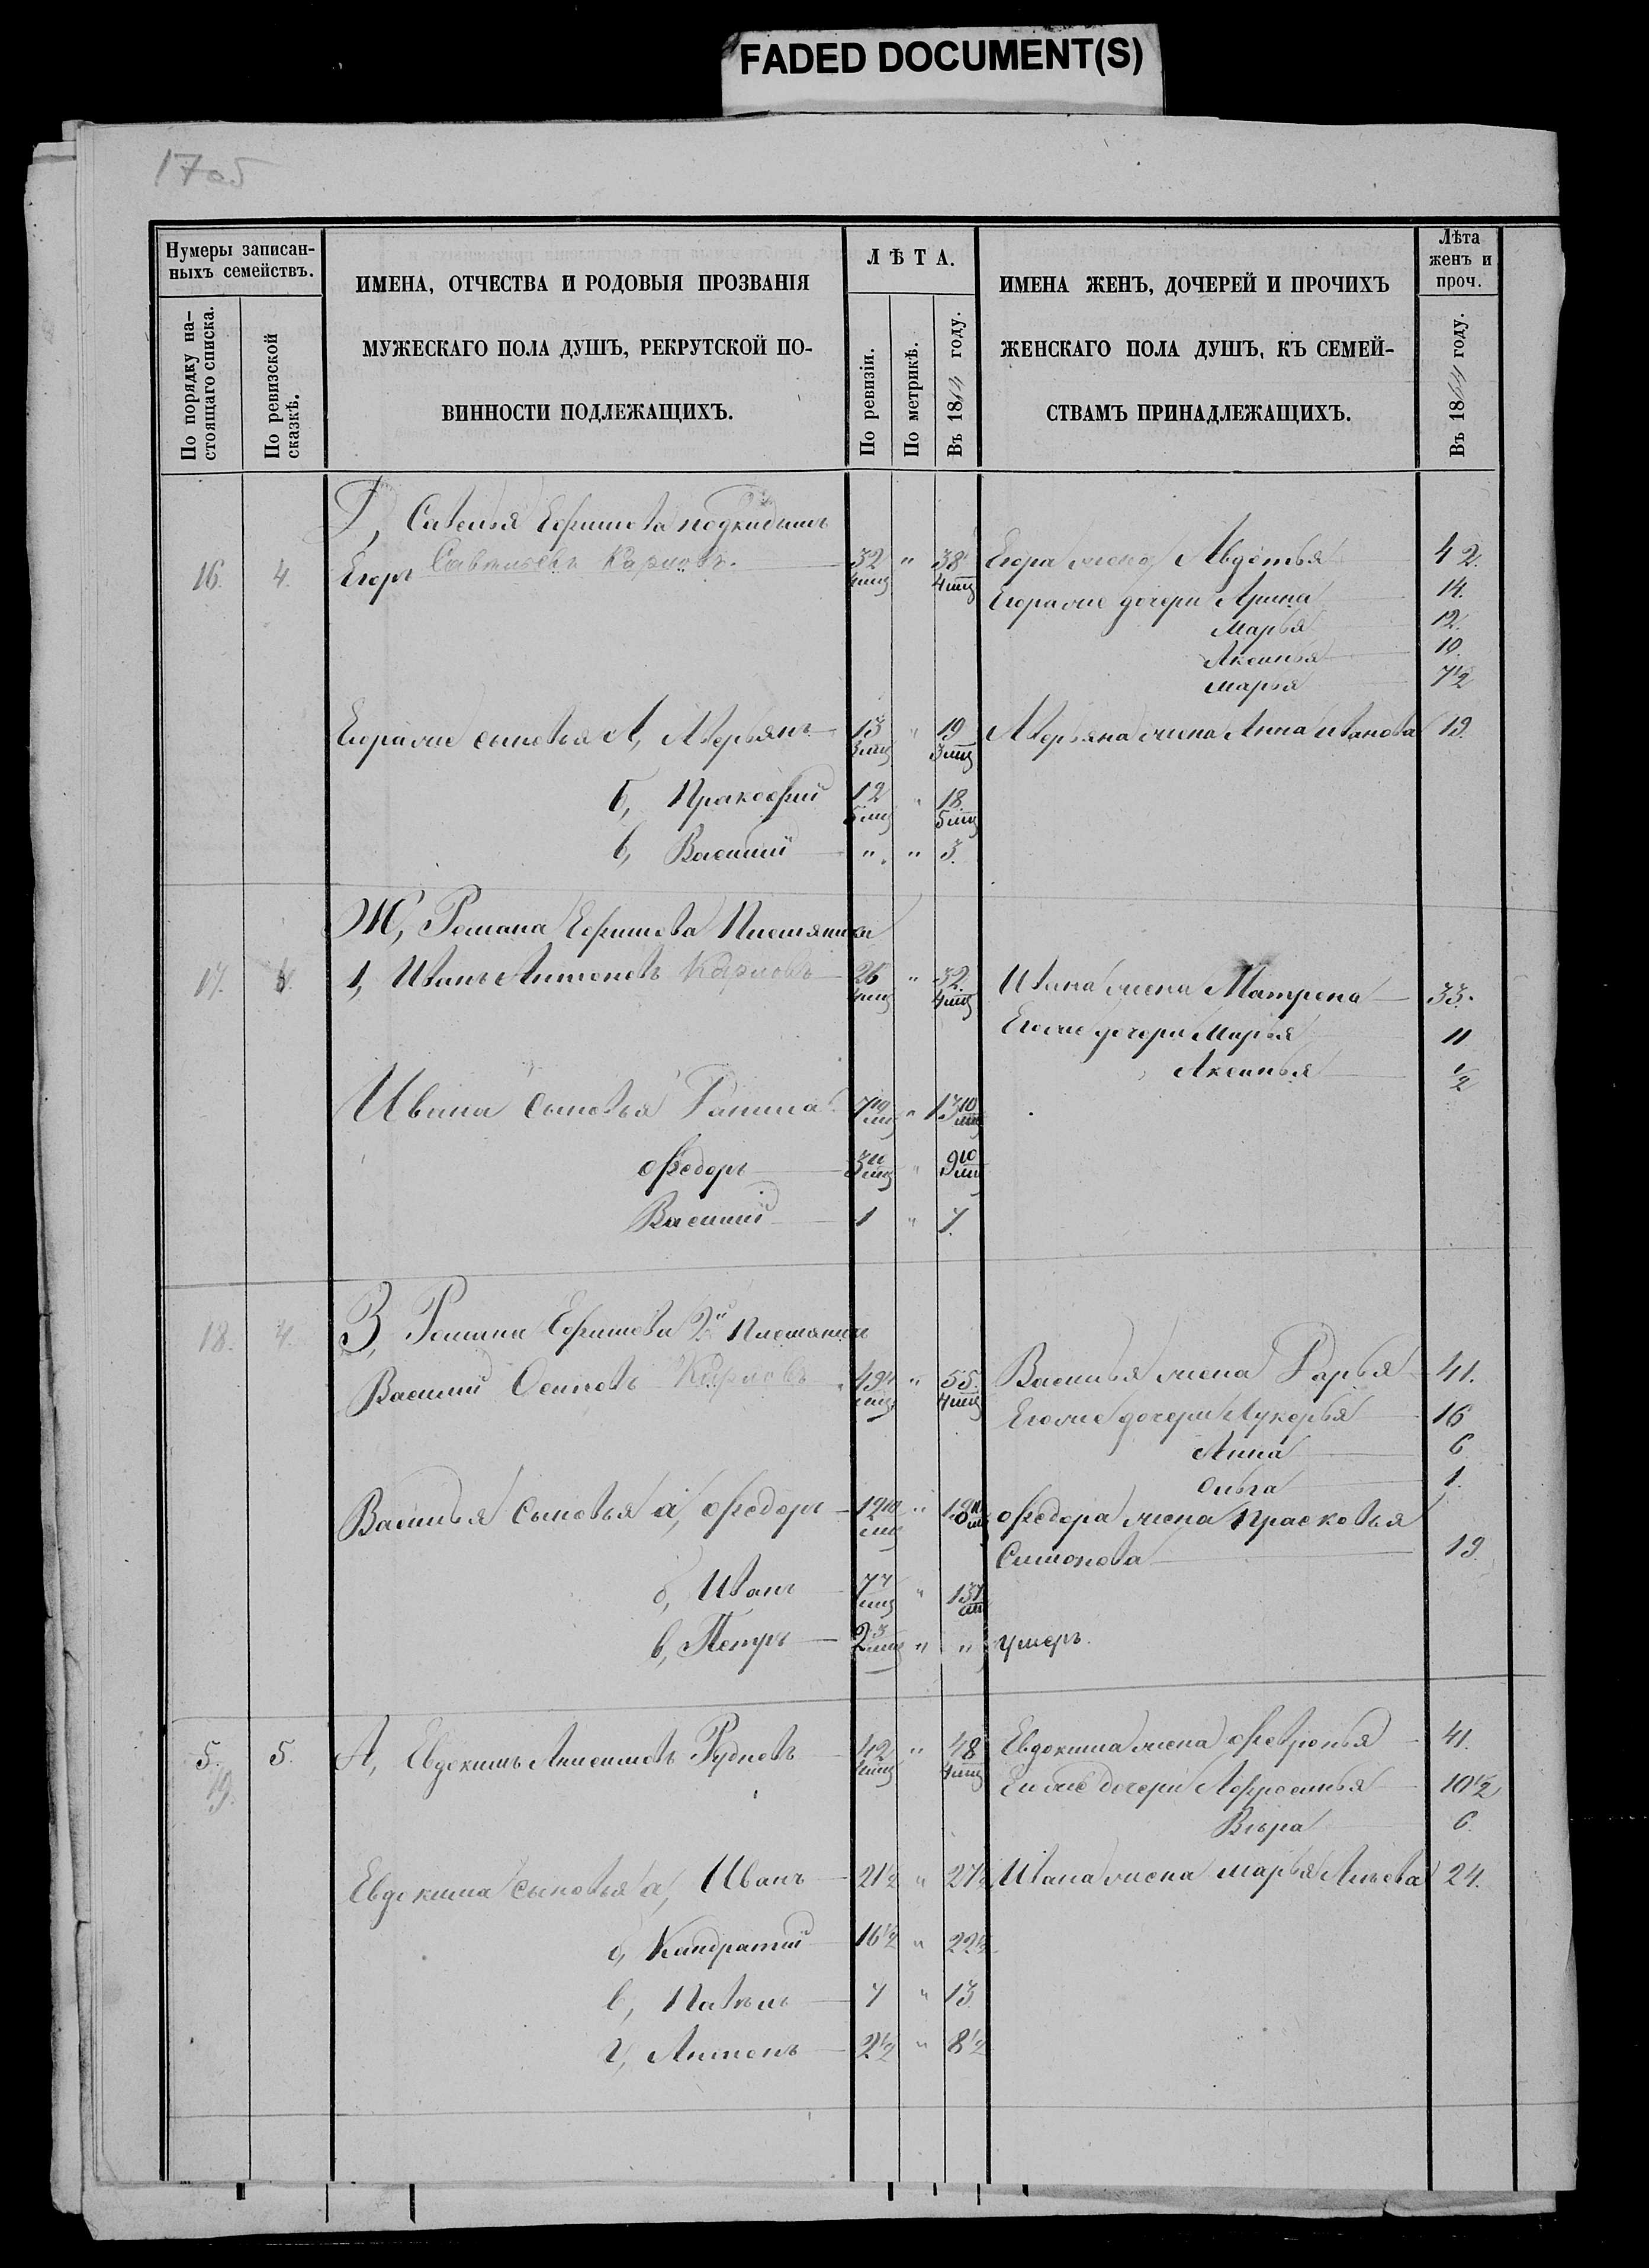 FADED DOCUMENT(S)
1705
Нумеры записан-
ныхъ семействъ.
По порядку на-
стоящаго списка.
По ревизской
сказкѣ.
ИМЕНА, ОТЧЕСТВА И РОДОВЫЯ ПРОЗВАНІЯ
МУЖЕСКАГО ПОЛА ДУШЪ, РЕКРУТСКОЙ ПО-
ВИННОСТИ ПОДЛЕЖАЩИХЪ.
ЛѢТА.
По ревизіи.
По метрикѣ.
Въ 1864 году.
ИМЕНА ЖЕНЪ, ДОЧЕРЕЙ И ПРОЧИХЪ
ЖЕНСКАГО ПОЛА ДУШЪ, КЪ СЕМЕЙ-
СТВАМЪ ПРИНАДЛЕЖАЩИХЪ.
Лѣта
женъ и
проч.
Въ 1864 году.
Савелья Ефимова подкидышъ
16. 4. Егоръ Савельевъ Карповъ. 32 4 мц " 38 4 мц Егора жена Авдотья 42.
Егора же дочери Арина 14.
Марья 12.
Аксинья 10.
Марья 7 1/2
Егора же сыновья А, Аверьянъ 13 3 мц " 19 3 мц Аверьяна жена Анна Иванова 19.
б, Пракофий 12 5 мц " 18. 5 мц
в, Василий " " 3.
Ж, Романа Ефимова Племянники
17. 4. 1, Иванъ Антоновъ Карповъ 26 4 мц " 32. 4 мц Ивана жена Матрена 33.
Его же дочери Марья 11
Аксинья 1/2
Ивана сыновья 7 10 мц " 13 10 мц
Федоръ 3 11 мц " 9 10 мц
Василий 1 " 7.
18. 4. З, Романа Ефимова 2й Племянникъ
Василий Осиповъ Карповъ 49 4 мц " 55. 4 мц Василья жена Дарья 41.
Его же дочери Лукерья 16
Анна 6
Ольга 1.
Василья сыновья а, Федоръ 12 10 мц " 18 11 мц Федора жена Прасковья
Симонова 19.
б, Иванъ 7 7 мц " 13 7 мц
в, Петръ 2 3 мц " " умеръ.
5. 19. 5. А, Евдокимъ Анисимовъ Рудновъ 42 4 мц " 48 4 мц Евдокима жена Феврония 41.
Его же дочери Афросинья 10 1/2
Вѣра 6.
Евдокима сыновья а, Иванъ 21 1/2 " 27 1/2 Ивана жена Марья 24.
б, Кандратий 16 1/2 " 22 1/2
в, Павелъ 7 " 13
г, Антонъ 2 1/2 " 8 1/2